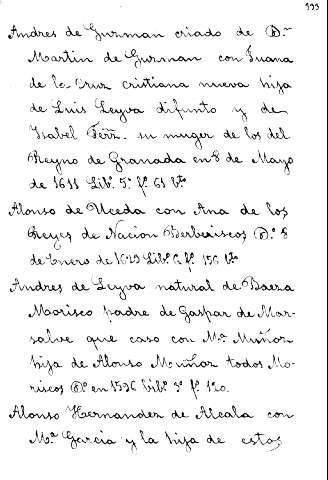 999
Andres de Guzman criado de D.ⁿ
Martin de Guzman con Juana
de la Cruz cristiana nueva hija
de Luis Leyva difunto y de
Isabel Ferrz. su muger de los del
Reyno de Granada en 8 de Mayo
de 1611 Lib.º 5.º f.º 61 vto
Alonso de Uceda con Ana de los
Reyes de Nacion Berberiscos D.º 8
de Enero de 1629 Lib.º 6 f.º 156 vto
Andres de Leyva natural de Baeza
Morisco padre de Gaspar de Mar-
salve que caso con M.ª Muñoz
hija de Alonso Muñoz todos Mo-
riscos D.º en 1596 Lib.º 3º f.º 120.
Alonso Hernandez de Alcala con
M.ª Garcia y la hija de estos